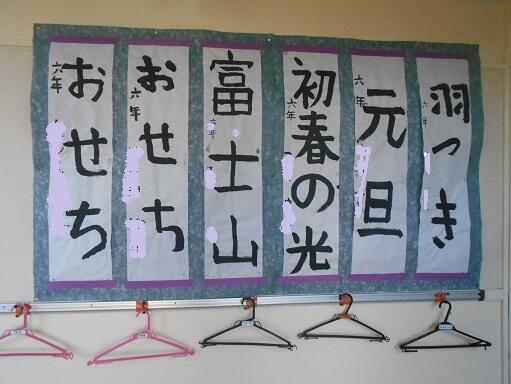 羽つき
六年
元旦
六年
初春の光
六年
富士山
六年
おせち
六年
おせち
六年